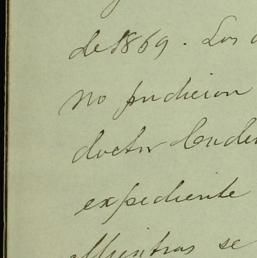 de 1869. Los
no pudieron
doctor
expediente
Mientras se